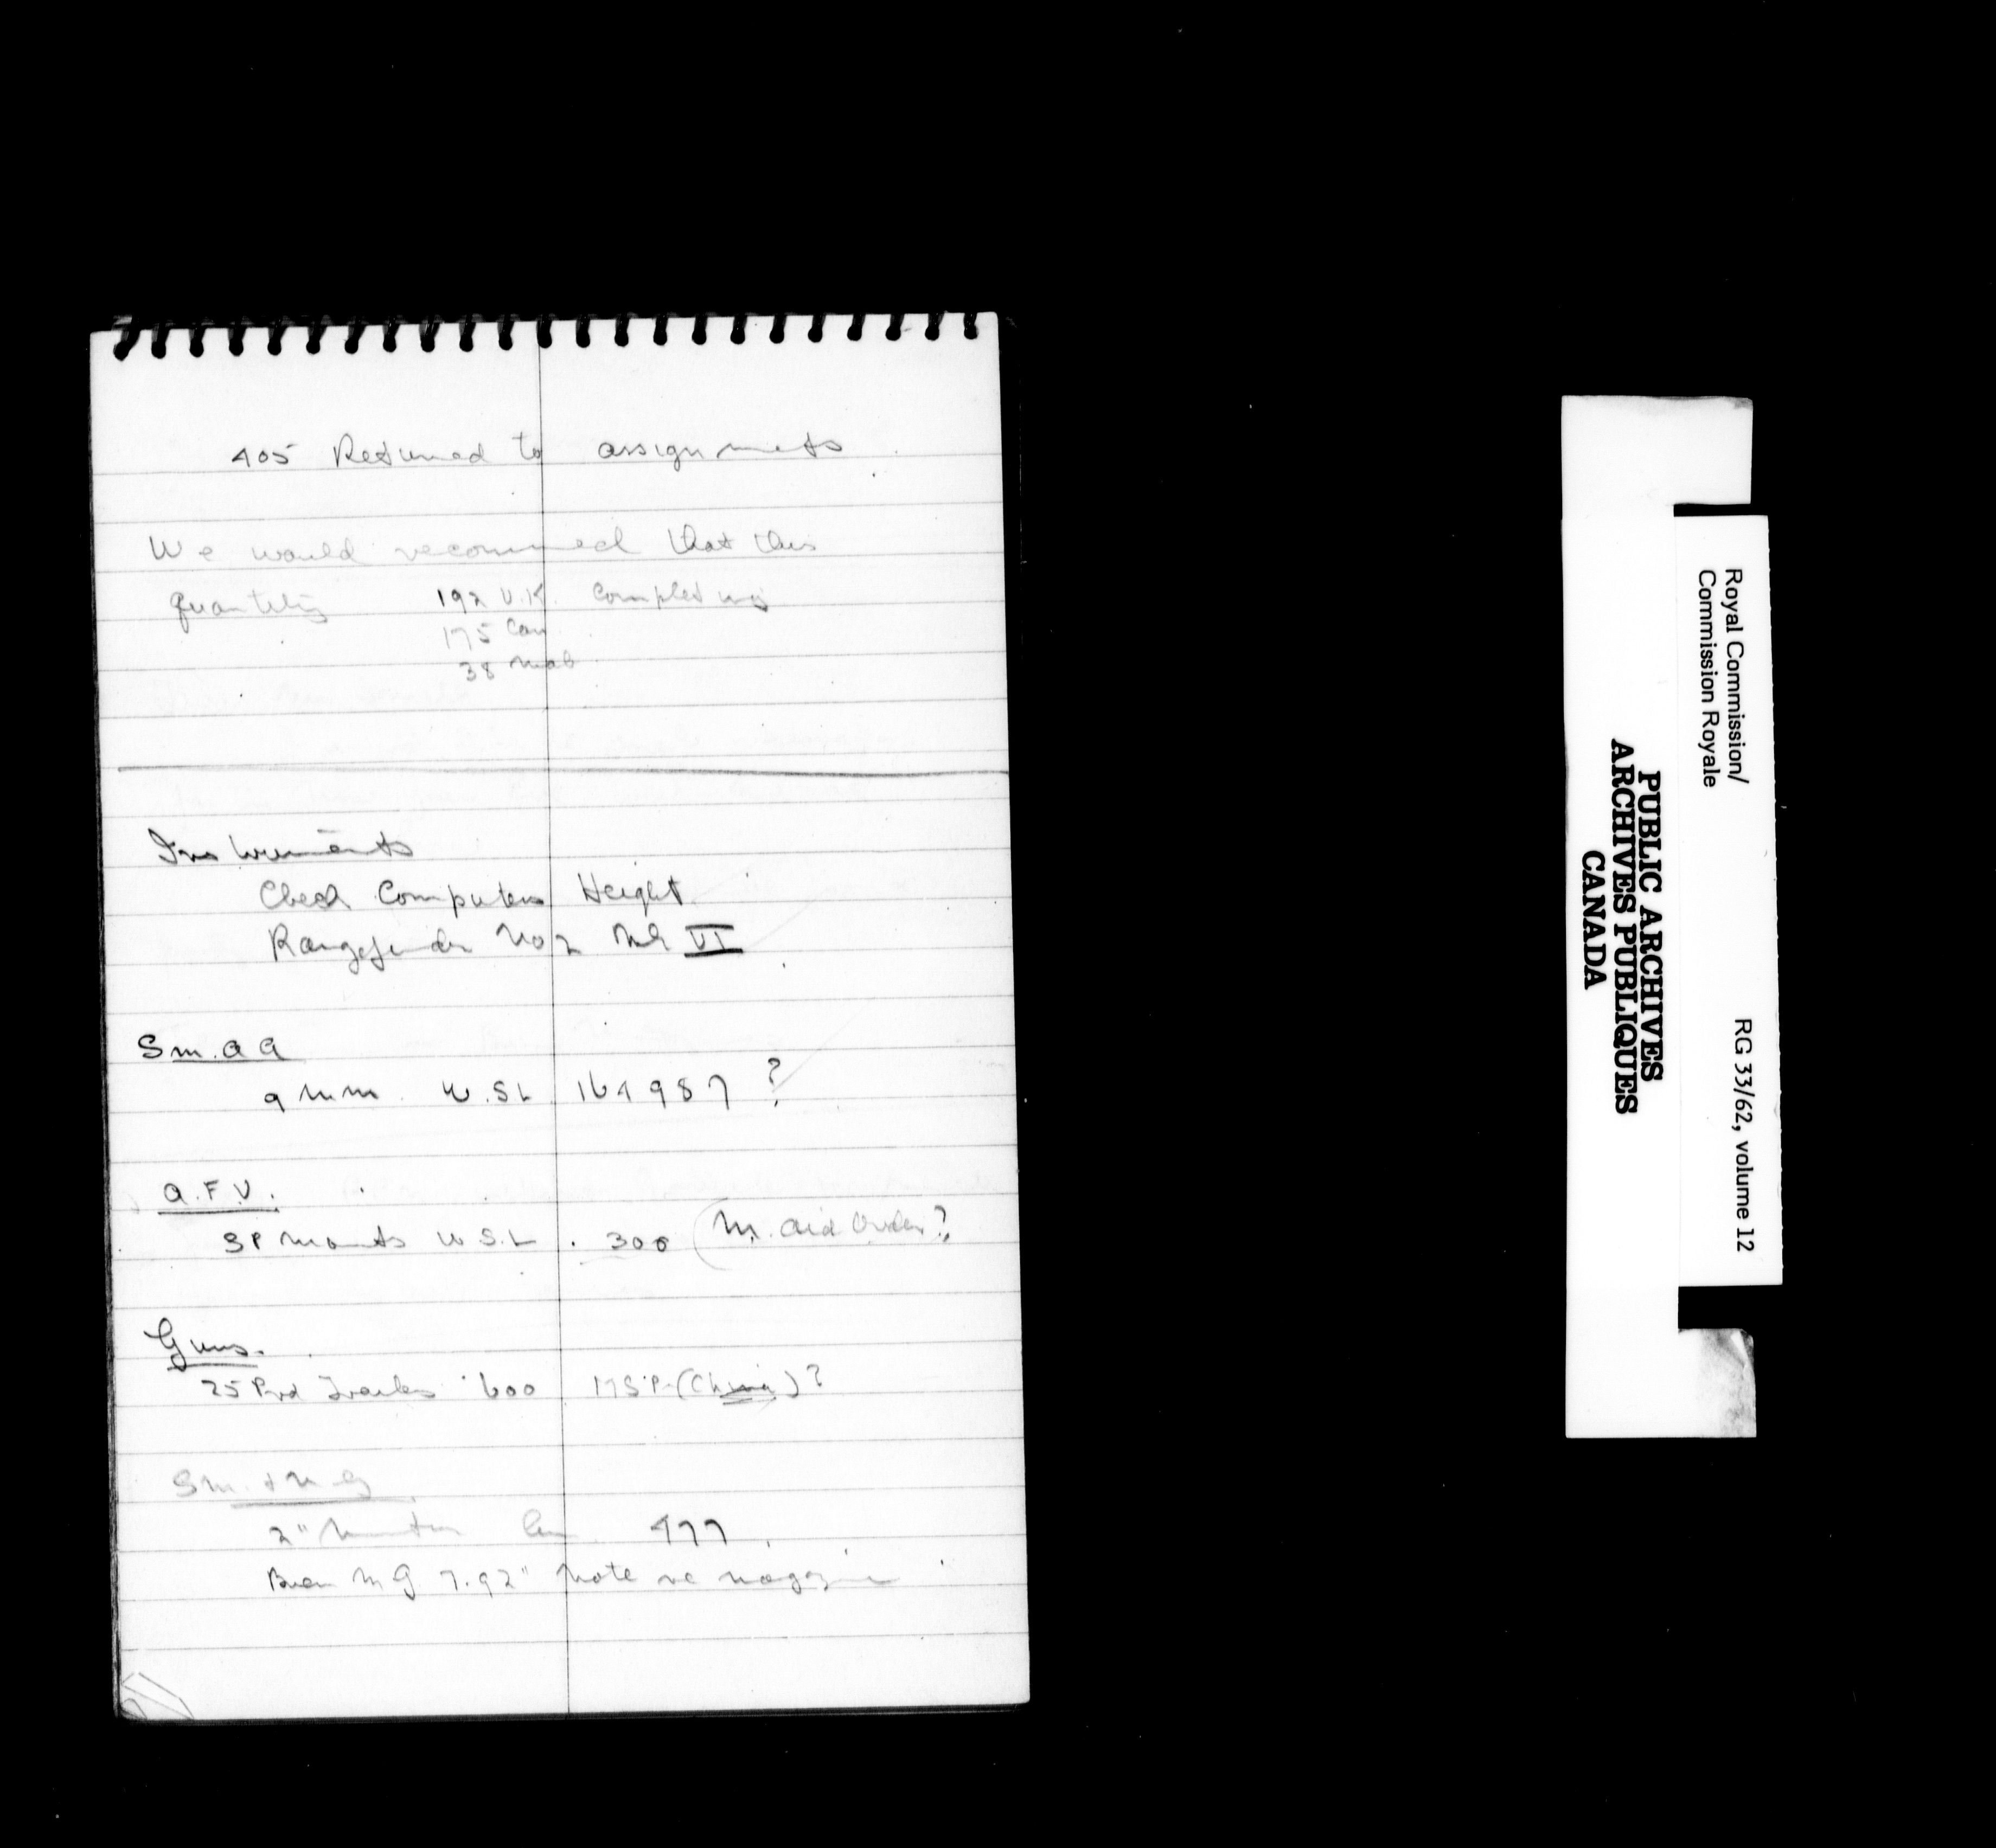 405 Returned to assignments
We would recommend that this
quantity 192 U.K. completing
175 Can
38 mab
Instruments
Check Computers Height
Rangefinder No 2 Mk VI
Sm. a a
9 mm. W.SL 164987 ?
a.F.V.
SP Mounts W.S.L. 300 (M. aid Order?
Guns.
25 Pnd Trailers 600 (China)?
Sm. + M G
2" Mortar 477
Bren MG 7.92" Note re magazine
Royal Commission/
Commission Royale
RG 33/62, volume 12
PUBLIC ARCHIVES
ARCHIVES PUBLIQUES
CANADA